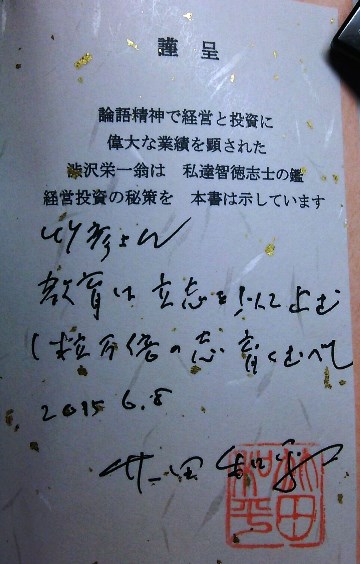 謹呈
論語精神で経営と投資に
偉大な業績を顕された
渋沢栄一翁は 私達智徳志士の鑑
経営投資の秘策を 本書は示しています
教育は立志を以
粒万倍の志育くむべし
2015 6.8
田